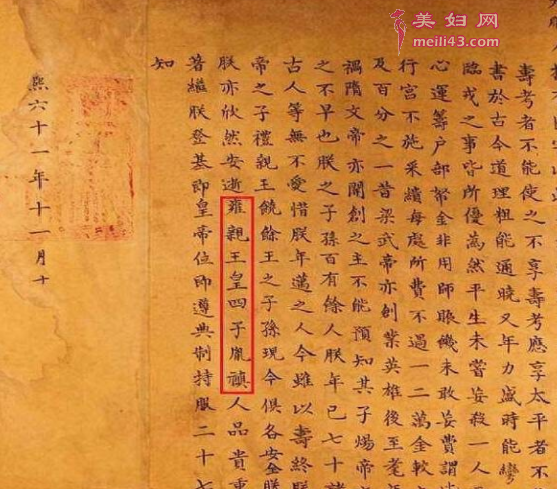 美妇网
meili43.com
壽考者不能使之不享壽考應享太平者不
書於古今道理粗能通曉又年力盛時能彎
臨戎之事皆所優為然平生未嘗妄殺一人
心運籌戶部帑金非用師賑饑未敢妄費謂
行宮不施采繢每處所費不過一二萬金較
及百分之一昔梁武帝亦創業英雄後至耄
禍隋文帝亦開創之主不能預知其子煬帝
之不早也朕之子孫百有餘人朕年已七十諸
古人等無不愛惜朕年邁之人今雖以壽終朕
帝之子禮親王饒餘王之子孫現今俱各安全朕
朕亦欣然安逝雍親王皇四子胤禛人品貴重
著繼朕登基即皇帝位即遵典制持服二十七
知
熙六十一年十一月十